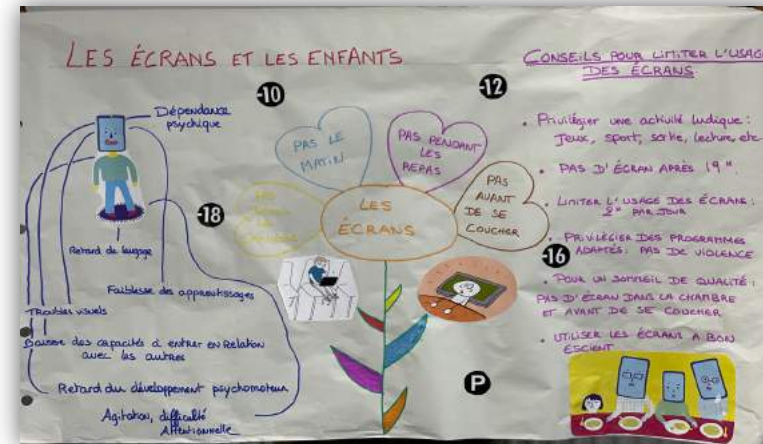 LES ÉCRANS ET LES ENFANTS
-10
-12
-18
-16
P
Dépendance
psychique
Retard de langage
Faiblesse des apprentissages
Troubles visuels
Baisse des capacités à entrer en Relation
avec les autres
Retard du développement psychomoteur
Agitation, difficulté
Attentionnelle
PAS LE
MATIN
PAS PENDANT
LES
REPAS
PAS
AVANT
DE SE
COUCHER
LES
ÉCRANS
CONSEILS POUR LIMITER L'USAGE
DES ÉCRANS
• Privilégier une activité ludique :
Jeux, sport, sortie, lecture, etc
• PAS D'ÉCRAN APRÈS 19 H.
• LIMITER L'USAGE DES ÉCRANS :
2H PAR JOUR
• PRIVILÉGIER DES PROGRAMMES
ADAPTÉS : PAS DE VIOLENCE
• POUR UN SOMMEIL DE QUALITÉ :
PAS D'ÉCRAN DANS LA CHAMBRE
ET AVANT DE SE COUCHER
• UTILISER LES ÉCRANS A BON
ESCIENT